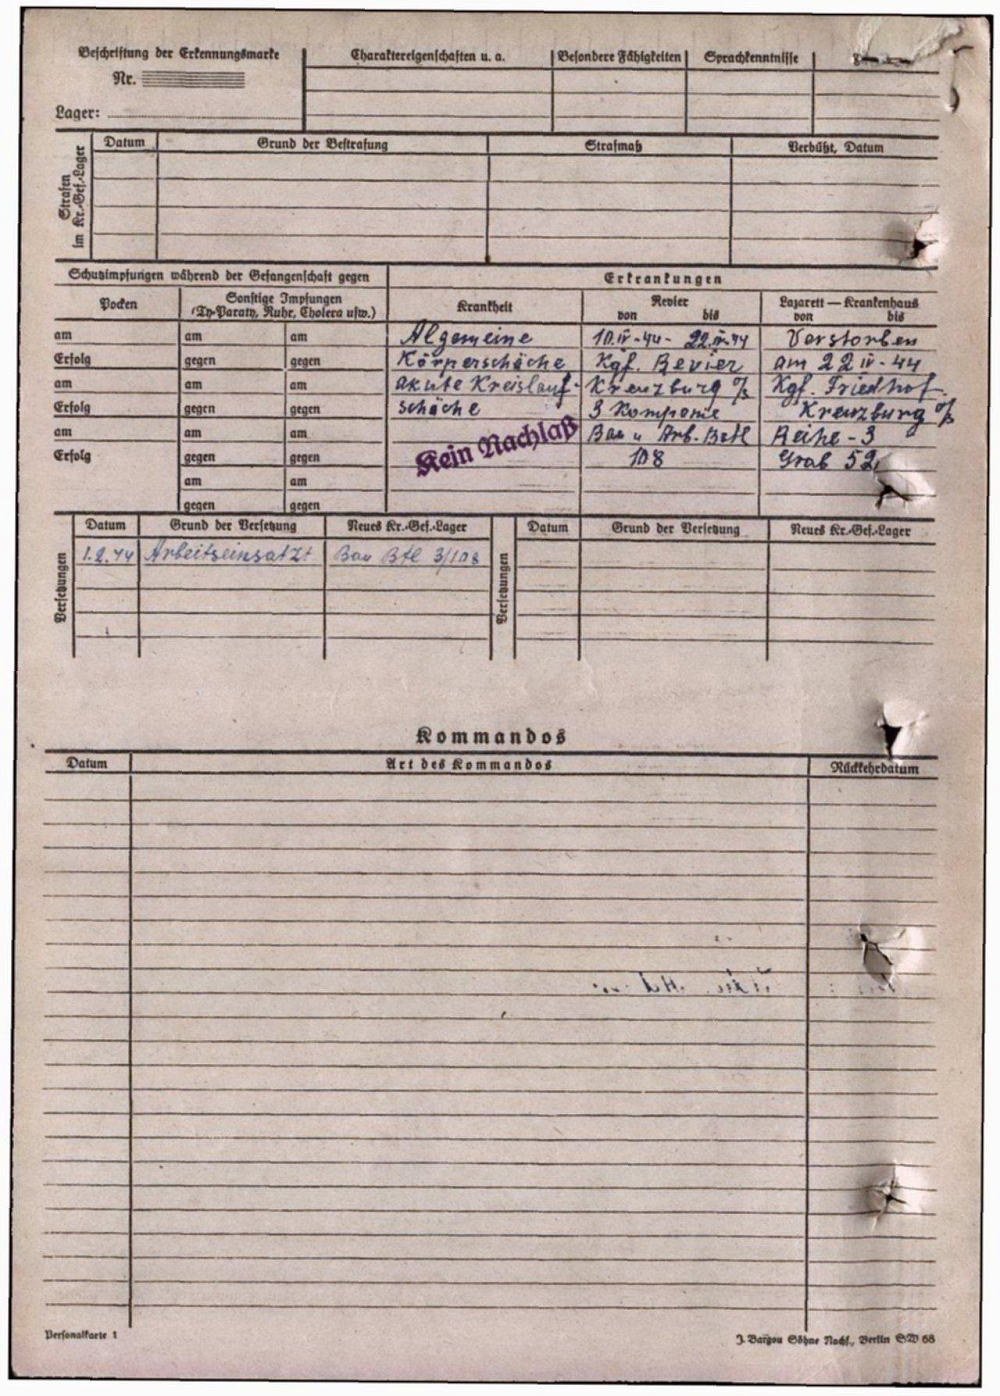 Beschriftung der Erkennungsmarke
Nr.
Lager:
Charaktereigenschaften u. a.
Besondere Fähigkeiten
Sprachkenntnisse
Strafen im Kr.-Gef.-Lager
Datum
Grund der Bestrafung
Strafmaß
Verbüßt, Datum
Schutzimpfungen während der Gefangenschaft gegen
Erkrankungen
Pocken
Sonstige Impfungen
(Ty-Paraty, Ruhr, Cholera usw.)
Krankheit
Revier
von bis
Lazarett — Krankenhaus
von bis
am am am Algemeine 10.IV-44- 22.IV.44 Verstorben
Erfolg gegen gegen Körperschäche Kgf. Revier am 22 IV-44
am am am akute Kreislauf- Kreuzburg o/s Kgf. Friedhof
Erfolg gegen gegen schäche 3 Kompanie Kreuzburg o/s
am am am Bau u Arb. Batl Reihe-3
Erfolg gegen gegen 108 Grab 52
Kein Nachlaß
am am
gegen gegen
Versetzungen
Datum Grund der Versetzung Neues Kr.-Gef.-Lager
1.2.44 Arbeitseinsatzt Bau Btl 3/108
Versetzungen
Datum Grund der Versetzung Neues Kr.-Gef.-Lager
Kommandos
Datum Art des Kommandos Rückkehrdatum
Personalkarte 1
J. Bargou Söhne Nachf., Berlin SW 68